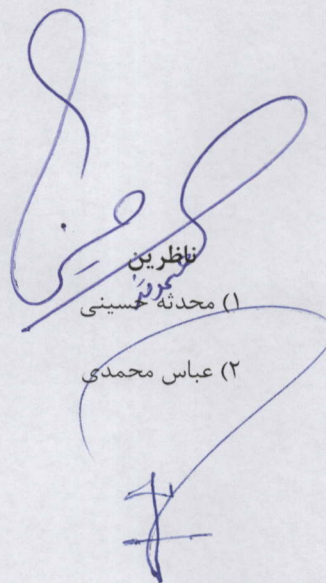 ناظرین
۱) محدثه حسینی
۲) عباس محمدی